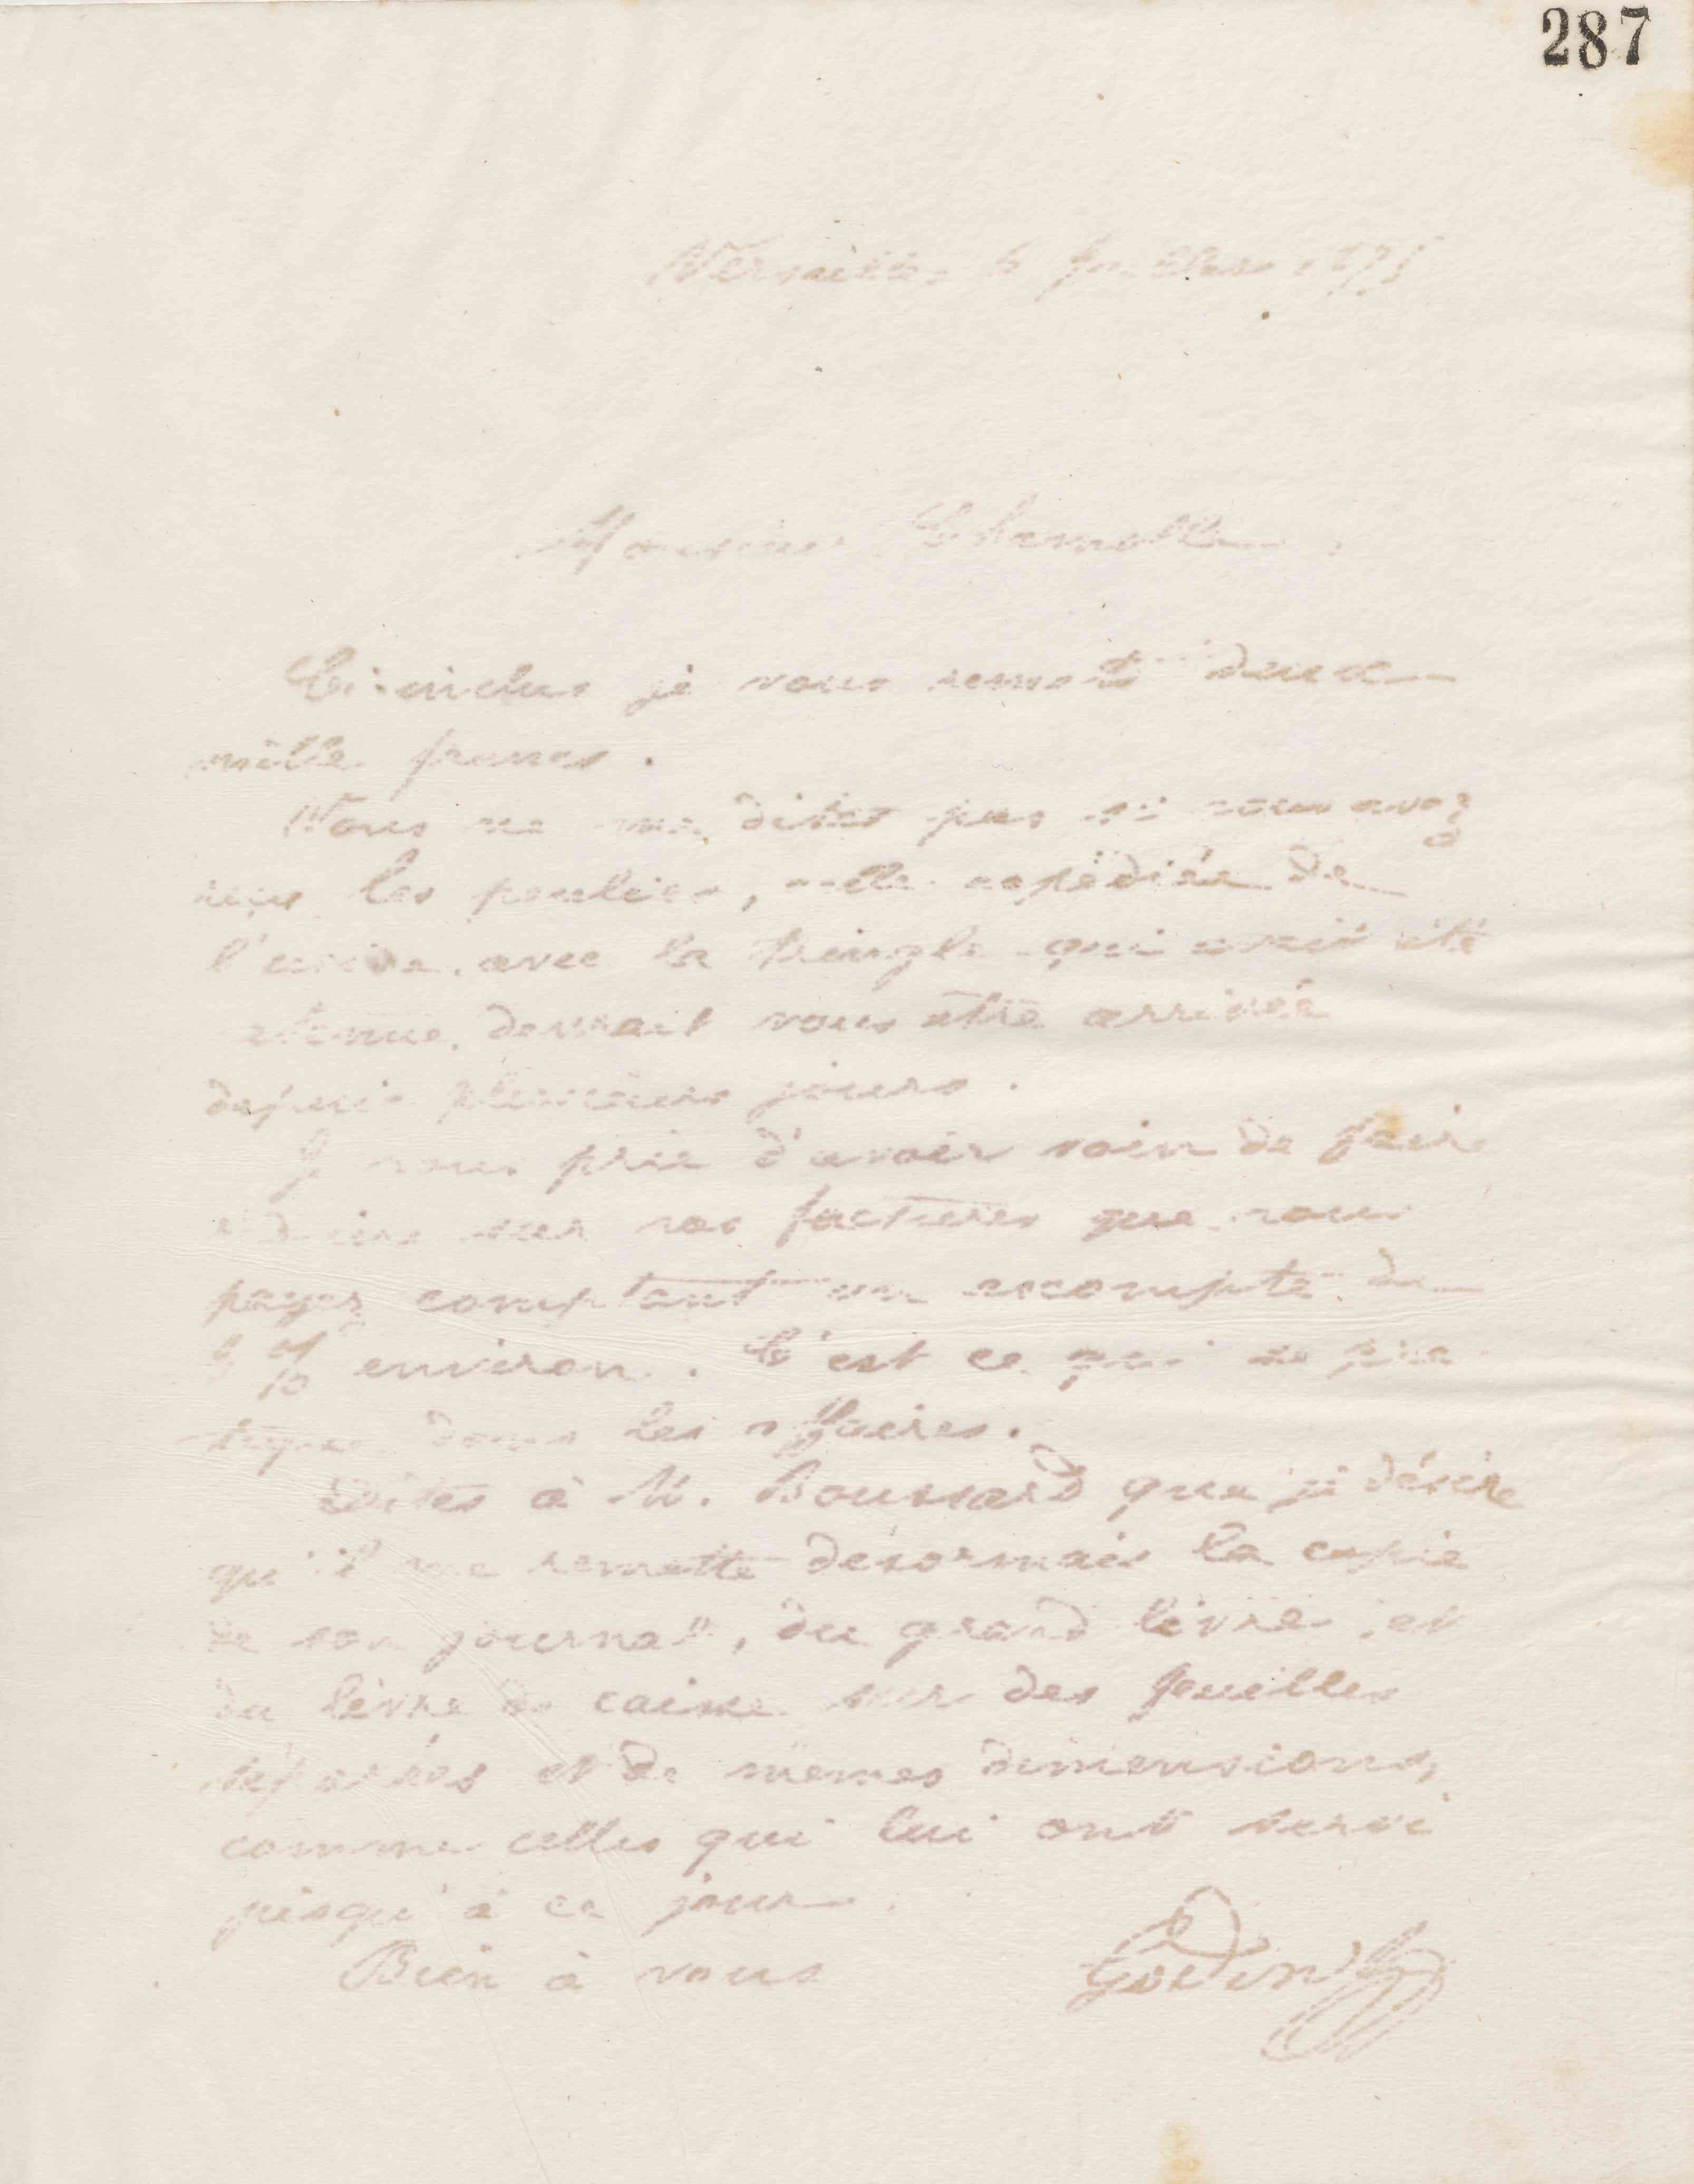 287
Versailles 6 Juillet 187
Monsieur
Ci-inclus je vous remets deux
mille francs.
Vous ne me dites pas si vous avez
reçu les poulies, celle expédiée de
l'usine avec la tringle qui avait été
devrait vous être arrivée
depuis plusieurs jours.
Je vous prie d'avoir soin de faire
sur vos factures que vous
payez comptant un escompte de
% environ. C'est ce qui se pra
tique dans les affaires.
Dites à M. Boussard que je désire
qu'il me remette désormais la copie
de son journal, du grand livre et
du livre de caisse sur des feuilles
séparées et de mêmes dimensions,
comme celles qui lui ont servi
jusqu'à ce jour.
Bien à vous
Godin